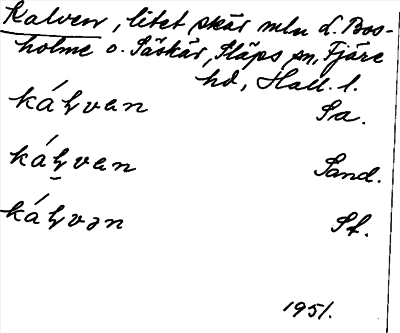 Kalven, litet skär mln L. Bos-
holme o. Säskär, Släps sn, Fjäre
hd, Hall. l.
káⱨvan Sa.
káⱨvan Sand.
káⱨvən Sf.
1951.